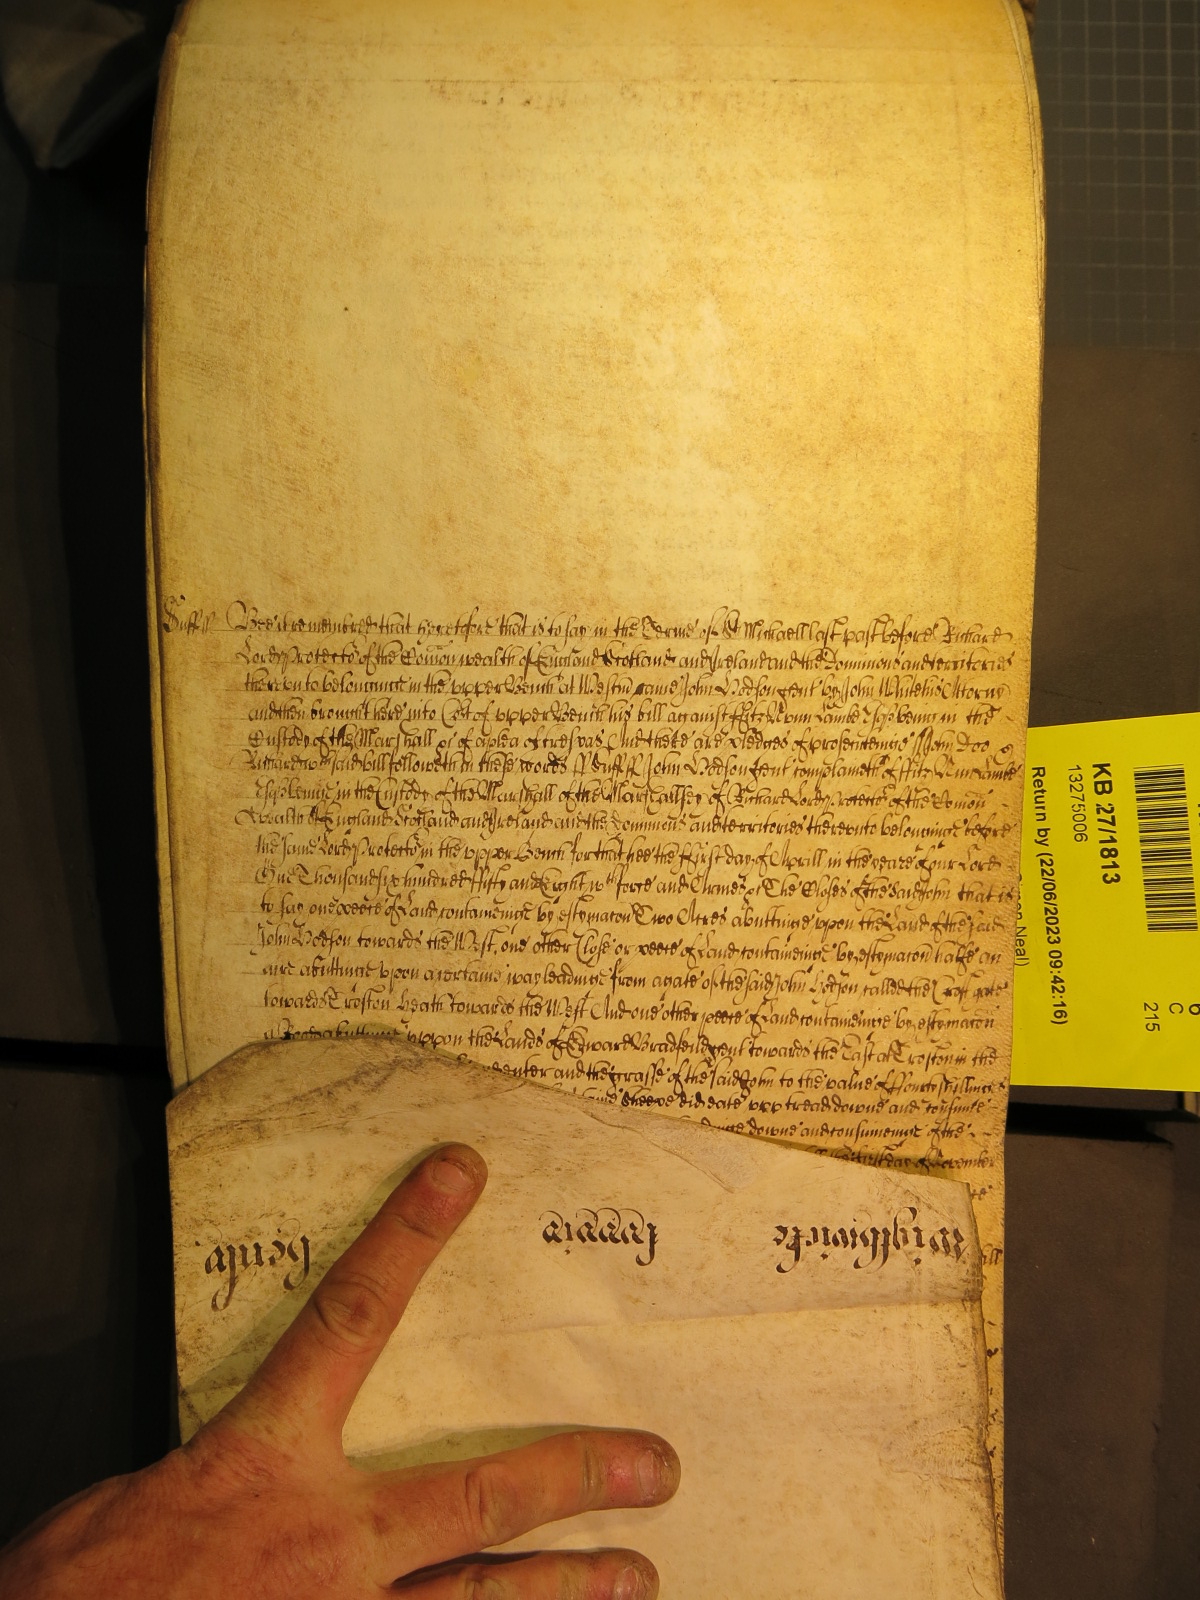 Suff ss Bee it remembred that heretofore that is to say in the Terme of St Michaell last past before Richard
Lord Protector of the Comon wealth of England Scotland and Ireland and the Dominions and territories
thereunto belonginge in the upper Bench at Westm came John Hodson gent by John White his Attorny
and then brought here into Cort of upper Bench his bill against Fitz Nunn Lambe Esqr beinge in the
Custody of the Marshall &c of a plea of trespas And there are pledges of prosecutinge John Doo &
Richard wch said bill followeth in these words ss Suff ss John Hodson gent complaineth of Fitz Nunn Lambe
Esqr beinge in the Custody of the Marshall of the Marshallsey of Richard Lord Protector of the Comon
Wealth of England Scotland and Ireland and the Dominions and territories thereunto belonginge before
the same Lord Protector in the upper Bench for that hee the First day of Aprill in the yeare of our Lord
One Thousand six hundred fifty and Eight wth force and Armes &c The Closes of the said John that is
to say one peece of Land contameinge by estymacon Two Acres abuttinge uppon the Land of the said
John Hodson towards the West, one other Close or peece of Land contameinge by estymacon halfe an
acre abuttinge upon a certaine way leadinge from a gate of the said John Hodson called the Croft gate
towards Troston Heath towards the West And one other peece of Land contameinge by estymacon
a Roode abuttinge uppon the Lands of Edward Bradfend gent towards the East at Troston in the
enter and the grasse of the said John to the value of Fourty shillings
and sheepe did eate upp tread downe and consume
downe and consumeinge of the
the first day of November
henia
KB 27/1813
13275006
Return by (22/06/2023 09:42:16)
Neal)
C
215